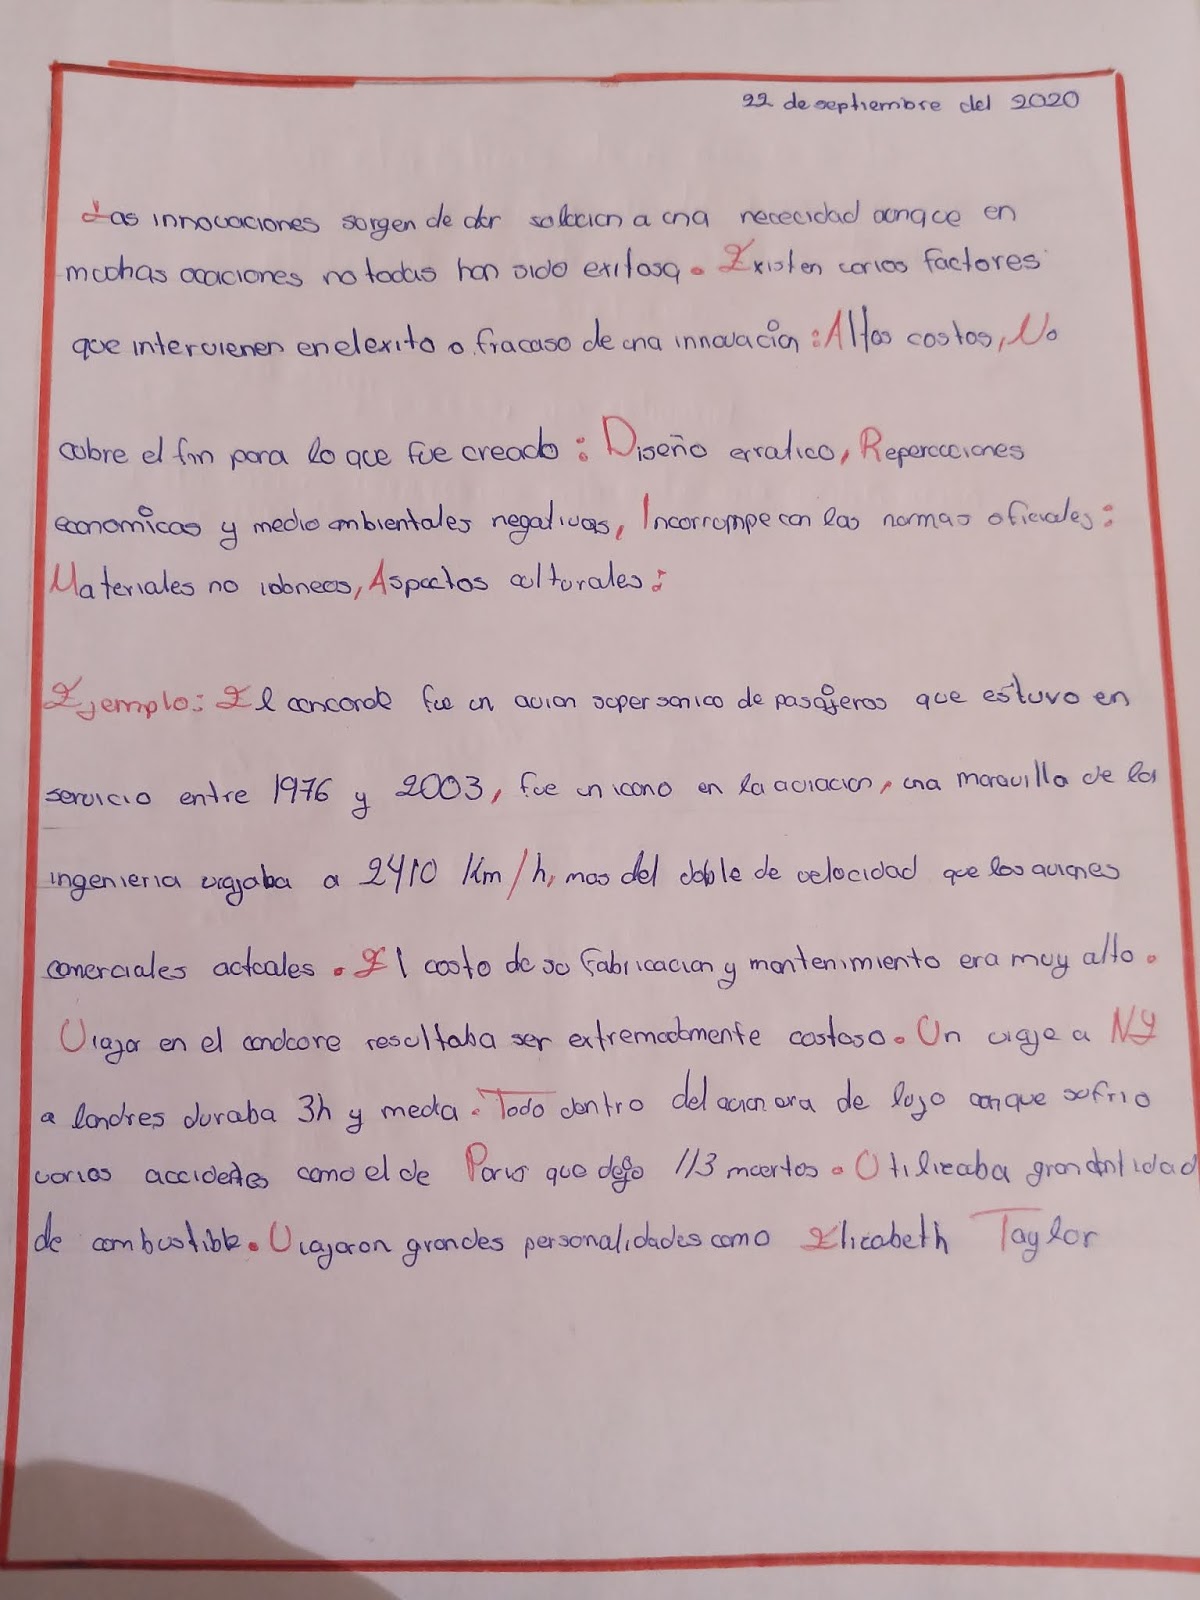 22 de septiembre del 2020
Las innovaciones sorgen de dar solucion a una nececidad aunque en
muchas ocaciones no todas han sido exitosa. Existen varios factores
que intervienen en el exito o fracaso de una innovación: Altos costos, No
cobre el fin para lo que fue creado: Diseño erratico, Repercuciones
economicas y medio ambientales negativas, Incorrumpe con las normas oficiales:
Materiales no idoneos, Aspectos culturales:
Ejemplo: El concorde fue un avion supersonico de pasajeros que estuvo en
servicio entre 1976 y 2003, fue un icono en la aviacion, una maravilla de la
ingenieria viajaba a 2410 Km/h, mas del doble de velocidad que los aviones
comerciales actuales. El costo de su fabricacion y mantenimiento era muy alto.
Viajar en el condcore resultaba ser extremadamente costoso. Un viaje a NY
a londres duraba 3h y media. Todo dentro del avion era de lujo aunque sufrio
varios accidentes como el de Paris que dejo 113 muertos. Utilizaba gran cantidad
de combustible. Viajaron grandes personalidades como Elizabeth Taylor